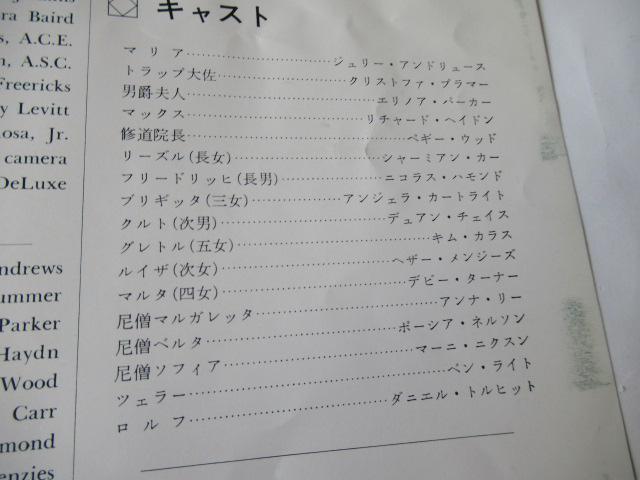 ra Baird
s, A.C.E.
n, A.S.C.
Freericks
y Levitt
osa, Jr.
camera
DeLuxe
ndrews
ummer
Parker
Haydn
Wood
Carr
mond
enzies
キャスト
マリア……ジュリー・アンドリュース
トラップ大佐……クリストファ・プラマー
男爵夫人……エリノア・パーカー
マックス……リチャード・ヘイドン
修道院長……ペギー・ウッド
リーズル(長女)……シャーミアン・カー
フリードリッヒ(長男)……ニコラス・ハモンド
ブリギッタ(三女)……アンジェラ・カートライト
クルト(次男)……デュアン・チェイス
グレトル(五女)……キム・カラス
ルイザ(次女)……ヘザー・メンジーズ
マルタ(四女)……デビー・ターナー
尼僧マルガレッタ……アンナ・リー
尼僧ベルタ……ポーシア・ネルソン
尼僧ソフィア……マーニ・ニクスン
ツェラー……ベン・ライト
ロルフ……ダニエル・トルヒット